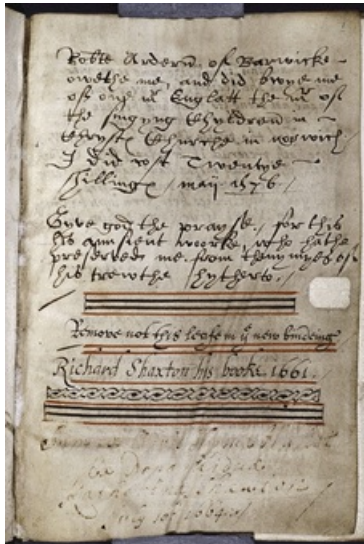 Robte Ardern of Barwicke
owethe me and did bwye me
of one mr Englatt the mr of
the singyng chyldren in
chryst churche in norwich
I did cost Twentye
shillings / maij 1576 /
Gyve god the prayse, for this
his ancient worke, who hathe
preserved me from thenymyes of
his trewthe hytherto /
Remove not this leafe in ye new bindeing
Richard Shaxton his booke. 1661.